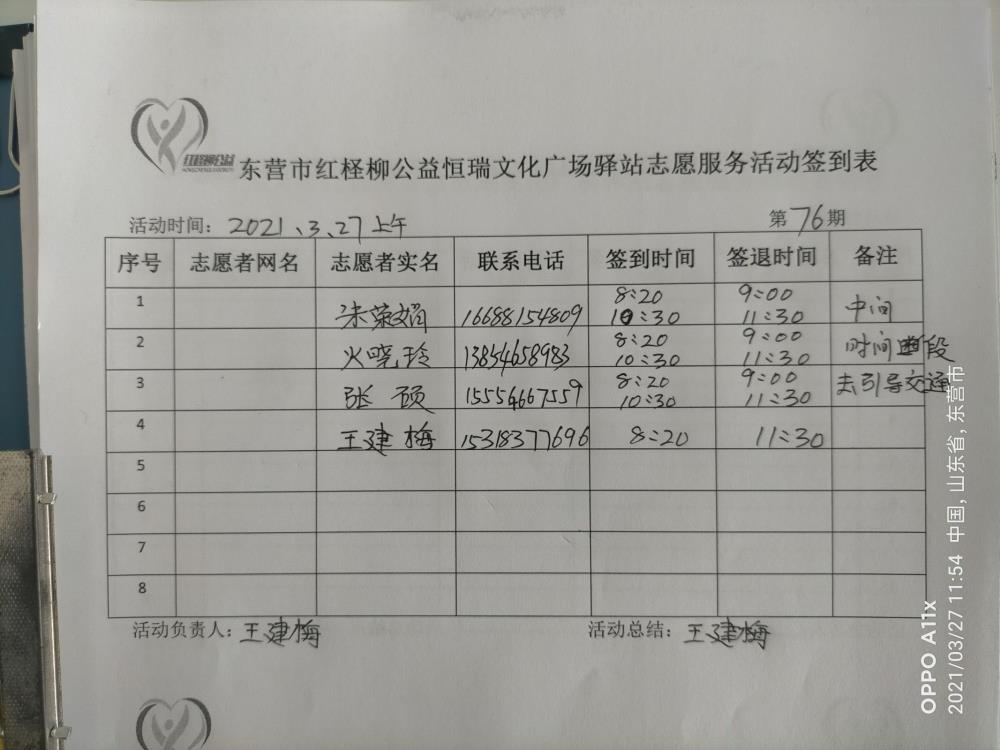 红柽柳公益
东营市红柽柳公益恒瑞文化广场驿站志愿服务活动签到表
活动时间：2021、3、27上午 第76期
序号 志愿者网名 志愿者实名 联系电话 签到时间 签退时间 备注
1 朱荣娟 16688154809 8:20 10:30 9:00 11:30 中间
2 火晓玲 13854658983 8:20 10:30 9:00 11:30 时间段
3 张硕 15554667559 8:20 10:30 9:00 11:30 去引导交通
4 王建梅 15318377696 8:20 11:30
5
6
7
8
活动负责人：王建梅 活动总结：王建梅
OPPO A11x
2021/03/27 11:54 中国, 山东省, 东营市